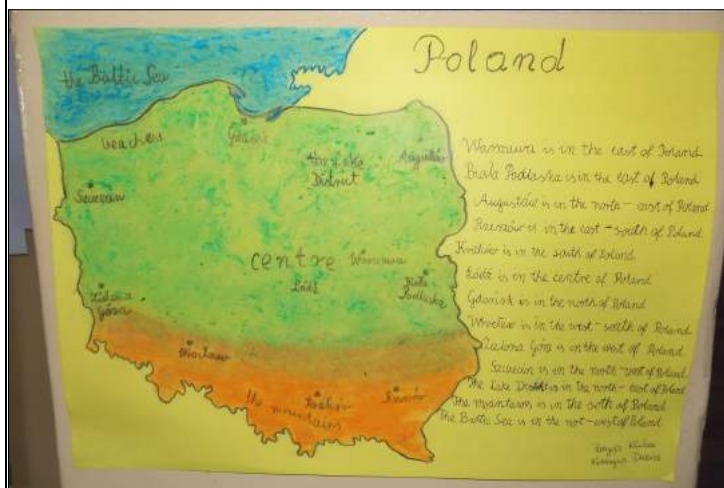 Poland
the Baltic Sea
beaches
Gdańsk
the Lake
District
Augustów
Szczecin
centre
Warszawa
Łódź
Biała
Podlaska
Zielona
Góra
Wrocław
the mountains
Kraków
Warszawa is in the east of Poland
Biała Podlaska is in the east of Poland
Augustów is in the north-east of Poland
Rzeszów is in the east-south of Poland
Kraków is in the south of Poland
Łódź is in the centre of Poland
Gdańsk is in the north of Poland
Wrocław is in the west-south of Poland
Zielona Góra is in the west of Poland
Szczecin is in the north-west of Poland
The Lake District is in the north-east of Poland
The mountains is in the soth of Poland
The Baltic Sea is in the not-west of Poland